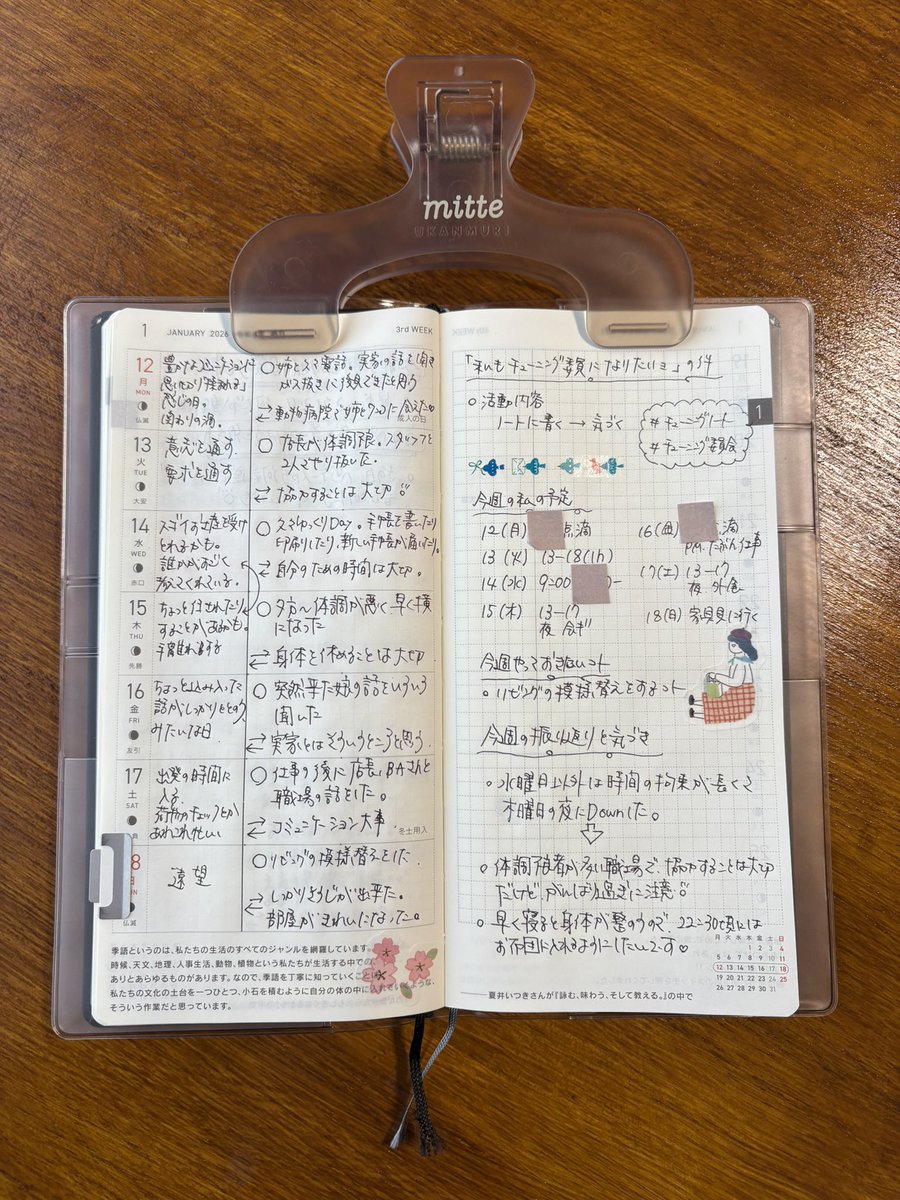 mitte
UKANMURI
1 JANUARY 2026
3rd WEEK
12
月
MON
仏滅
感じの日。
関わりの滴。
○姉と久々電話。実家の話を聞き
⇄動物病院で姉と
成人の日
13
火
TUE
大安
意志を通す
要求を通す
○店長が体調不良。スタッフと
2人でやり抜いた。
⇄協力することは大切
14
水
WED
赤口
とれるかも。
誰かがすごく
考えてくれている。
○久々ゆっくりDay。手帳を書いたり
印刷したり、新しい手帳が届いたり。
⇄自分のための時間は大切。
15
木
THU
先勝
ちょっと任されたり
することがあるかも。
○夕方〜体調が悪く早く横
になった
⇄身体を休めることは大切
16
金
FRI
友引
ちょっと込み入った
話がしっかりととのう
みたいな日
○突然来た娘の話をいろいろ
聞いた
⇄実家とはそういうところと思う
17
土
SAT
負
出発の時間に
入る。
○仕事の後に店長、BAさんと
職場の話をした。
⇄コミュニケーション大事
冬土用入
8
日
SUN
仏滅
遠望
○リビングの模様替えをした
⇄しっかりそうじが出来た。
部屋がきれいになった。
季語というのは、私たちの生活のすべてのジャンルを網羅しています。
時候、天文、地理、人事生活、動物、植物という私たちが生活する中での
ありとあらゆるものがあります。なので、季語を丁寧に知っていくことは、
私たちの文化の土台を一つひとつ、小石を積むように自分の体の中に入れていくような、
そういう作業だと思っています。
「私もチューニング委員になりたいョ」の件
1
○活動内容
ノートに書く → 気づく
#チューニングノート
#チューニング委員会
今週の私の予定
12(月) 点滴
13(火) 13-18(1h)
14(水) 9:00
15(木) 13-17
16(金) 滴
P.M. たぶん仕事
17(土) 13-17
夜 外食
18(日) 家具見に行く
今週やっておきたいコト
○リビングの模様替えをするコト
今週の振り返りと気づき
○水曜日以外は時間の拘束が長くて
木曜日の夜にDownした。
○体調不良者が多い職場で、協力することは大切
だけど、がんばり過ぎに注意
○早く寝ると身体が整うので、22:30頃には
お布団に入れるようにしたいです♡
月 火 水 木 金 土 日
1 2 3 4
5 6 7 8 9 10 11
12 13 14 15 16 17 18
19 20 21 22 23 24 25
26 27 28 29 30 31
――夏井いつきさんが『詠む、味わう、そして教える。』の中で